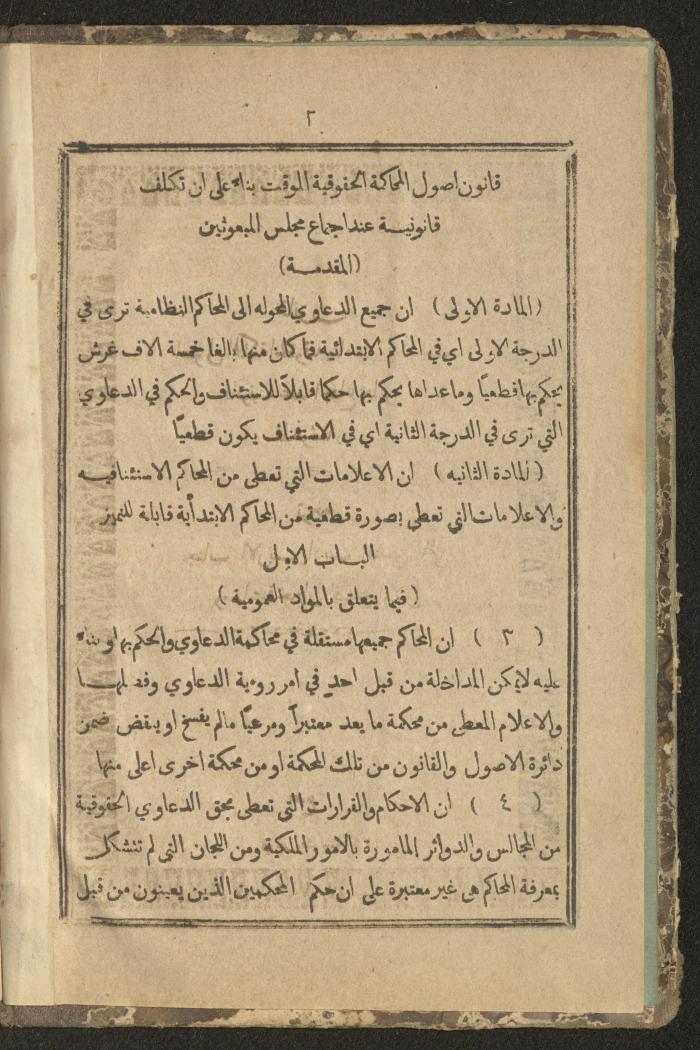 ٢
قانون اصول المحاكمة الحقوقية الموقت بناء على ان تكلف
قانونيسة عند اجماع مجلس المبعوثين
(المقدمة)
(المادة الاولى) ان جميع الدعاوي المحوله الى المحاكم النظامية ترى في
الدرجة الاولى اي في المحاكم الابتدائية فما كان منها بالغا خمسة الاف غرش
يحكم بها قطعيًا وما عداها يحكم بها حكما قابلاً للاستئناف والحكم في الدعاوي
التي ترى في الدرجة الثانية اي في الاستئناف يكون قطعيًا
(المادة الثانيه) ان الاعلامات التي تعطى من المحاكم الاستئنافيه
والاعلامات التي تعطى بصورة قطعية من المحاكم الابتدأية قابلة للتميز
الباب الاول
(فيما يتعلق بالمواد العمومية)
(٣) ان المحاكم جميعها مستقلة في محاكمة الدعاوي والحكم بها وبناء
عليه لا يمكن المداخلة من قبل احد في امر رؤية الدعاوي وفصلها
والاعلام المعطى من محكمة ما يعد معتبراً ومرعيًا مالم يفسخ او ينقض ضمن
دائرة الاصول والقانون من تلك المحكمة او من محكمة اخرى اعلى منها
(٤) ان الاحكام والقرارات التي تعطى بحق الدعاوي الحقوقية
من المجالس والدوائر المامورة بالامور الملكية ومن اللجان التي لم تتشكل
بمعرفة المحاكم هي غير معتبرة على ان حكم المحكمين الذين يعينون من قبل